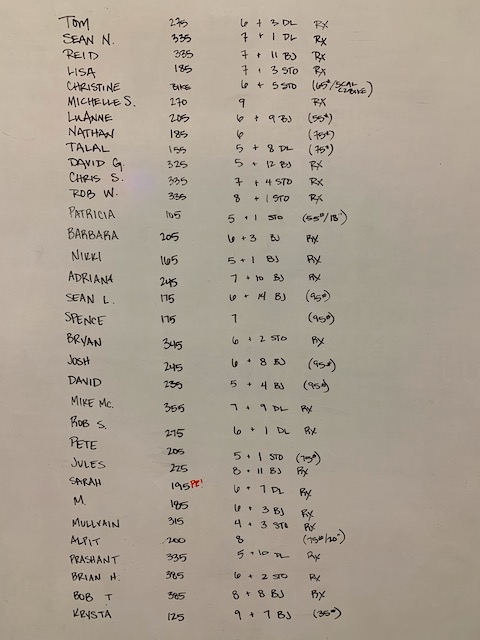 TOM 275 6 + 3 DL RX
SEAN N. 335 7 + 1 DL RX
REID 335 7 + 11 BJ RX
LISA 185 7 + 3 STO RX
CHRISTINE BIKE 6 + 5 STO (65#/SCAL C2BIKE)
MICHELLE S. 270 9 RX
LUANNE 205 6 + 9 BJ (55#)
NATHAN 185 6 (75#)
TALAL 155 5 + 8 DL (75#)
DAVID G. 325 5 + 12 BJ RX
CHRIS S. 335 7 + 4 STO RX
ROB W. 335 8 + 1 STO RX
PATRICIA 105 5 + 1 STO (55#/18")
BARBARA 205 6 + 3 BJ RX
NIKKI 165 5 + 1 BJ RX
ADRIANA 245 7 + 10 BJ RX
SEAN L. 175 6 + 14 BJ (95#)
SPENCE 175 7 (95#)
BRYAN 345 6 + 2 STO RX
JOSH 245 6 + 8 BJ (95#)
DAVID 235 5 + 4 BJ (95#)
MIKE MC. 355 7 + 9 DL RX
ROB S. 275 6 + 1 DL RX
PETE 205 5 + 1 STO (75#)
JULES 225 8 + 11 BJ RX
SARAH 195 PR! 6 + 7 DL RX
M 185 6 + 3 BJ RX
MULLVAIN 315 4 + 3 STO RX
ALPIT 200 8 (75#/20")
PRASHANT 335 5 + 10 DL RX
BRIAN H. 385 6 + 2 STO RX
BOB T 385 8 + 8 BJ RX
KRYSTA 125 9 + 7 BJ (35#)